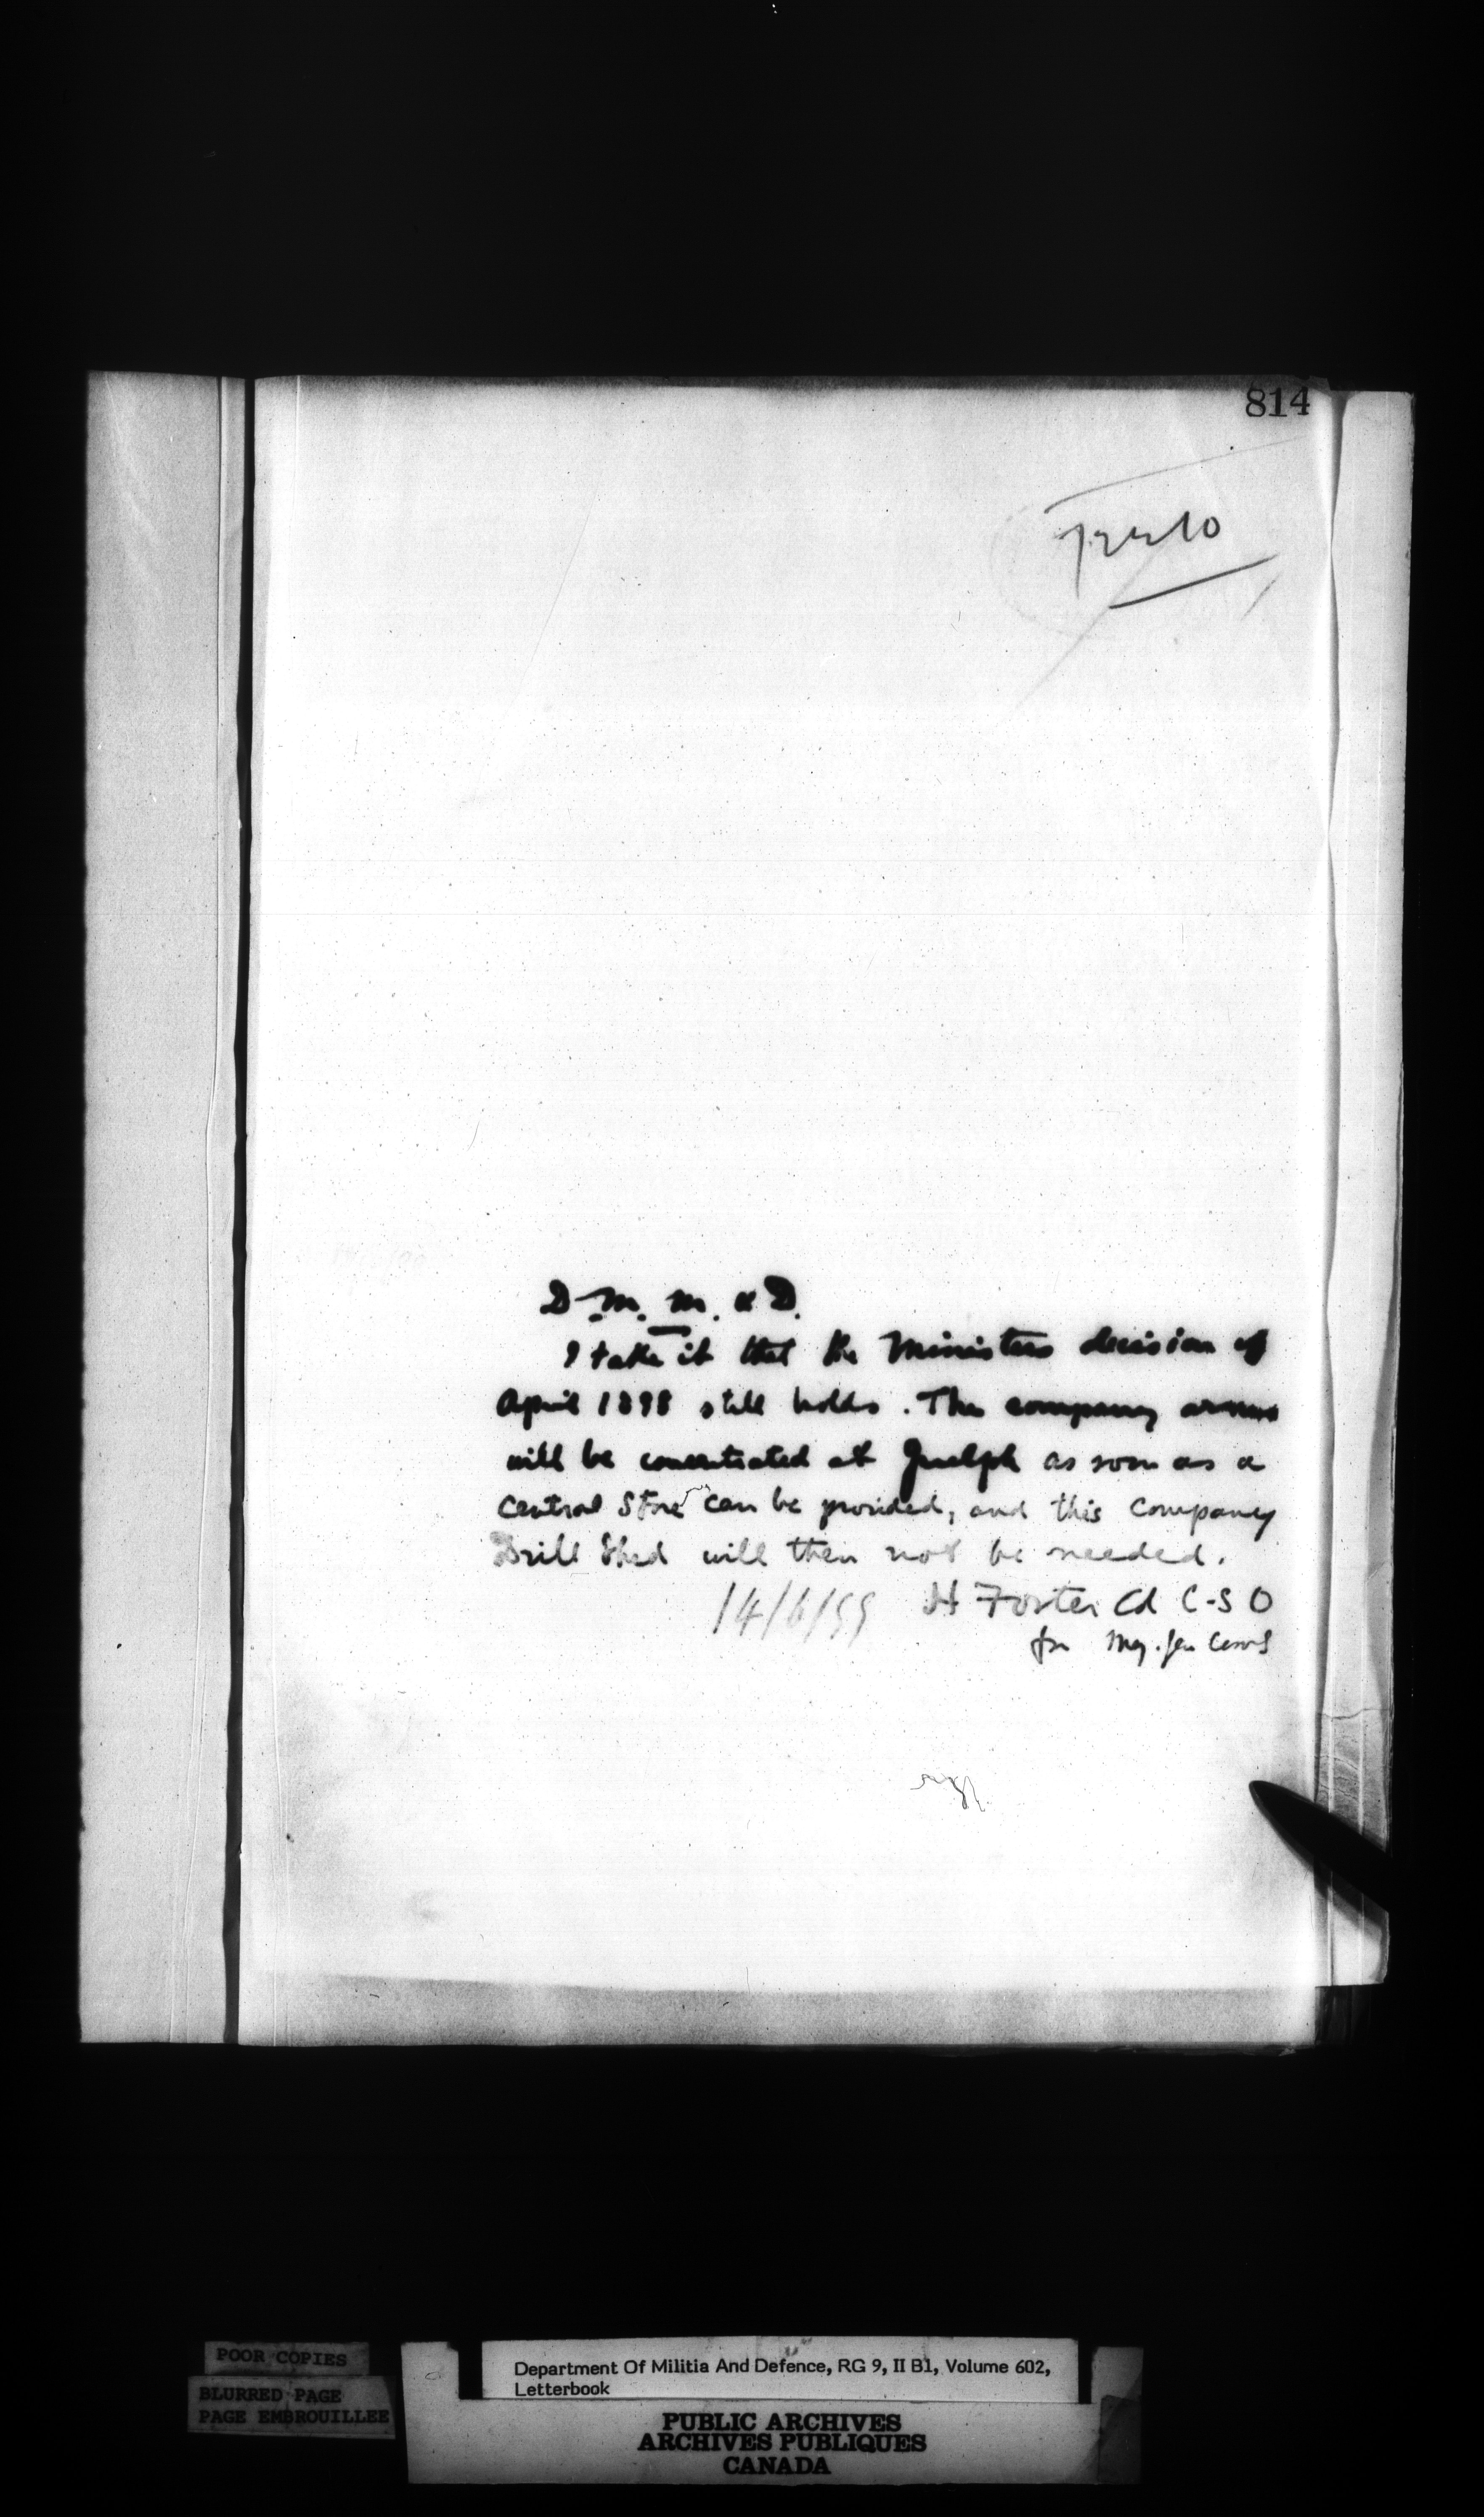 814
D.M.M. & D.
I take it that the Ministers decision of
April 1898 still holds. The company arms
will be concentrated at Guelph as soon as a
Central Store can be provided, and this Company
Drill Shed will then not be needed.
14/6/99 H Foster Col C-S O
for Maj. Gen Comd
POOR COPIES
BLURRED PAGE
PAGE EMBROUILLEE
Department Of Militia And Defence, RG 9, II B1, Volume 602,
Letterbook
PUBLIC ARCHIVES
ARCHIVES PUBLIQUES
CANADA